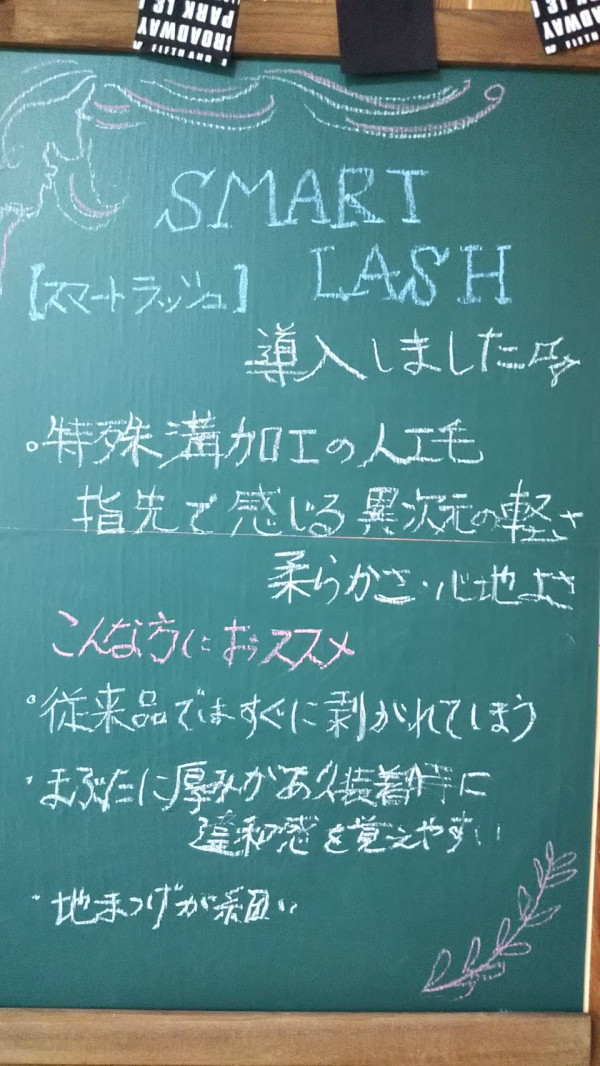 BROADWAY
PARK LE
SMART
LASH
【スマートラッシュ】
導入しました
。特殊溝加工の人工毛
指先で感じる異次元の軽さ
柔らかさ・心地よさ
こんな方におススメ
。従来品ではすぐに剥がれてしまう
・まぶたに厚みがあり装着時に
違和感を覚えやすい
・地まつげが細い